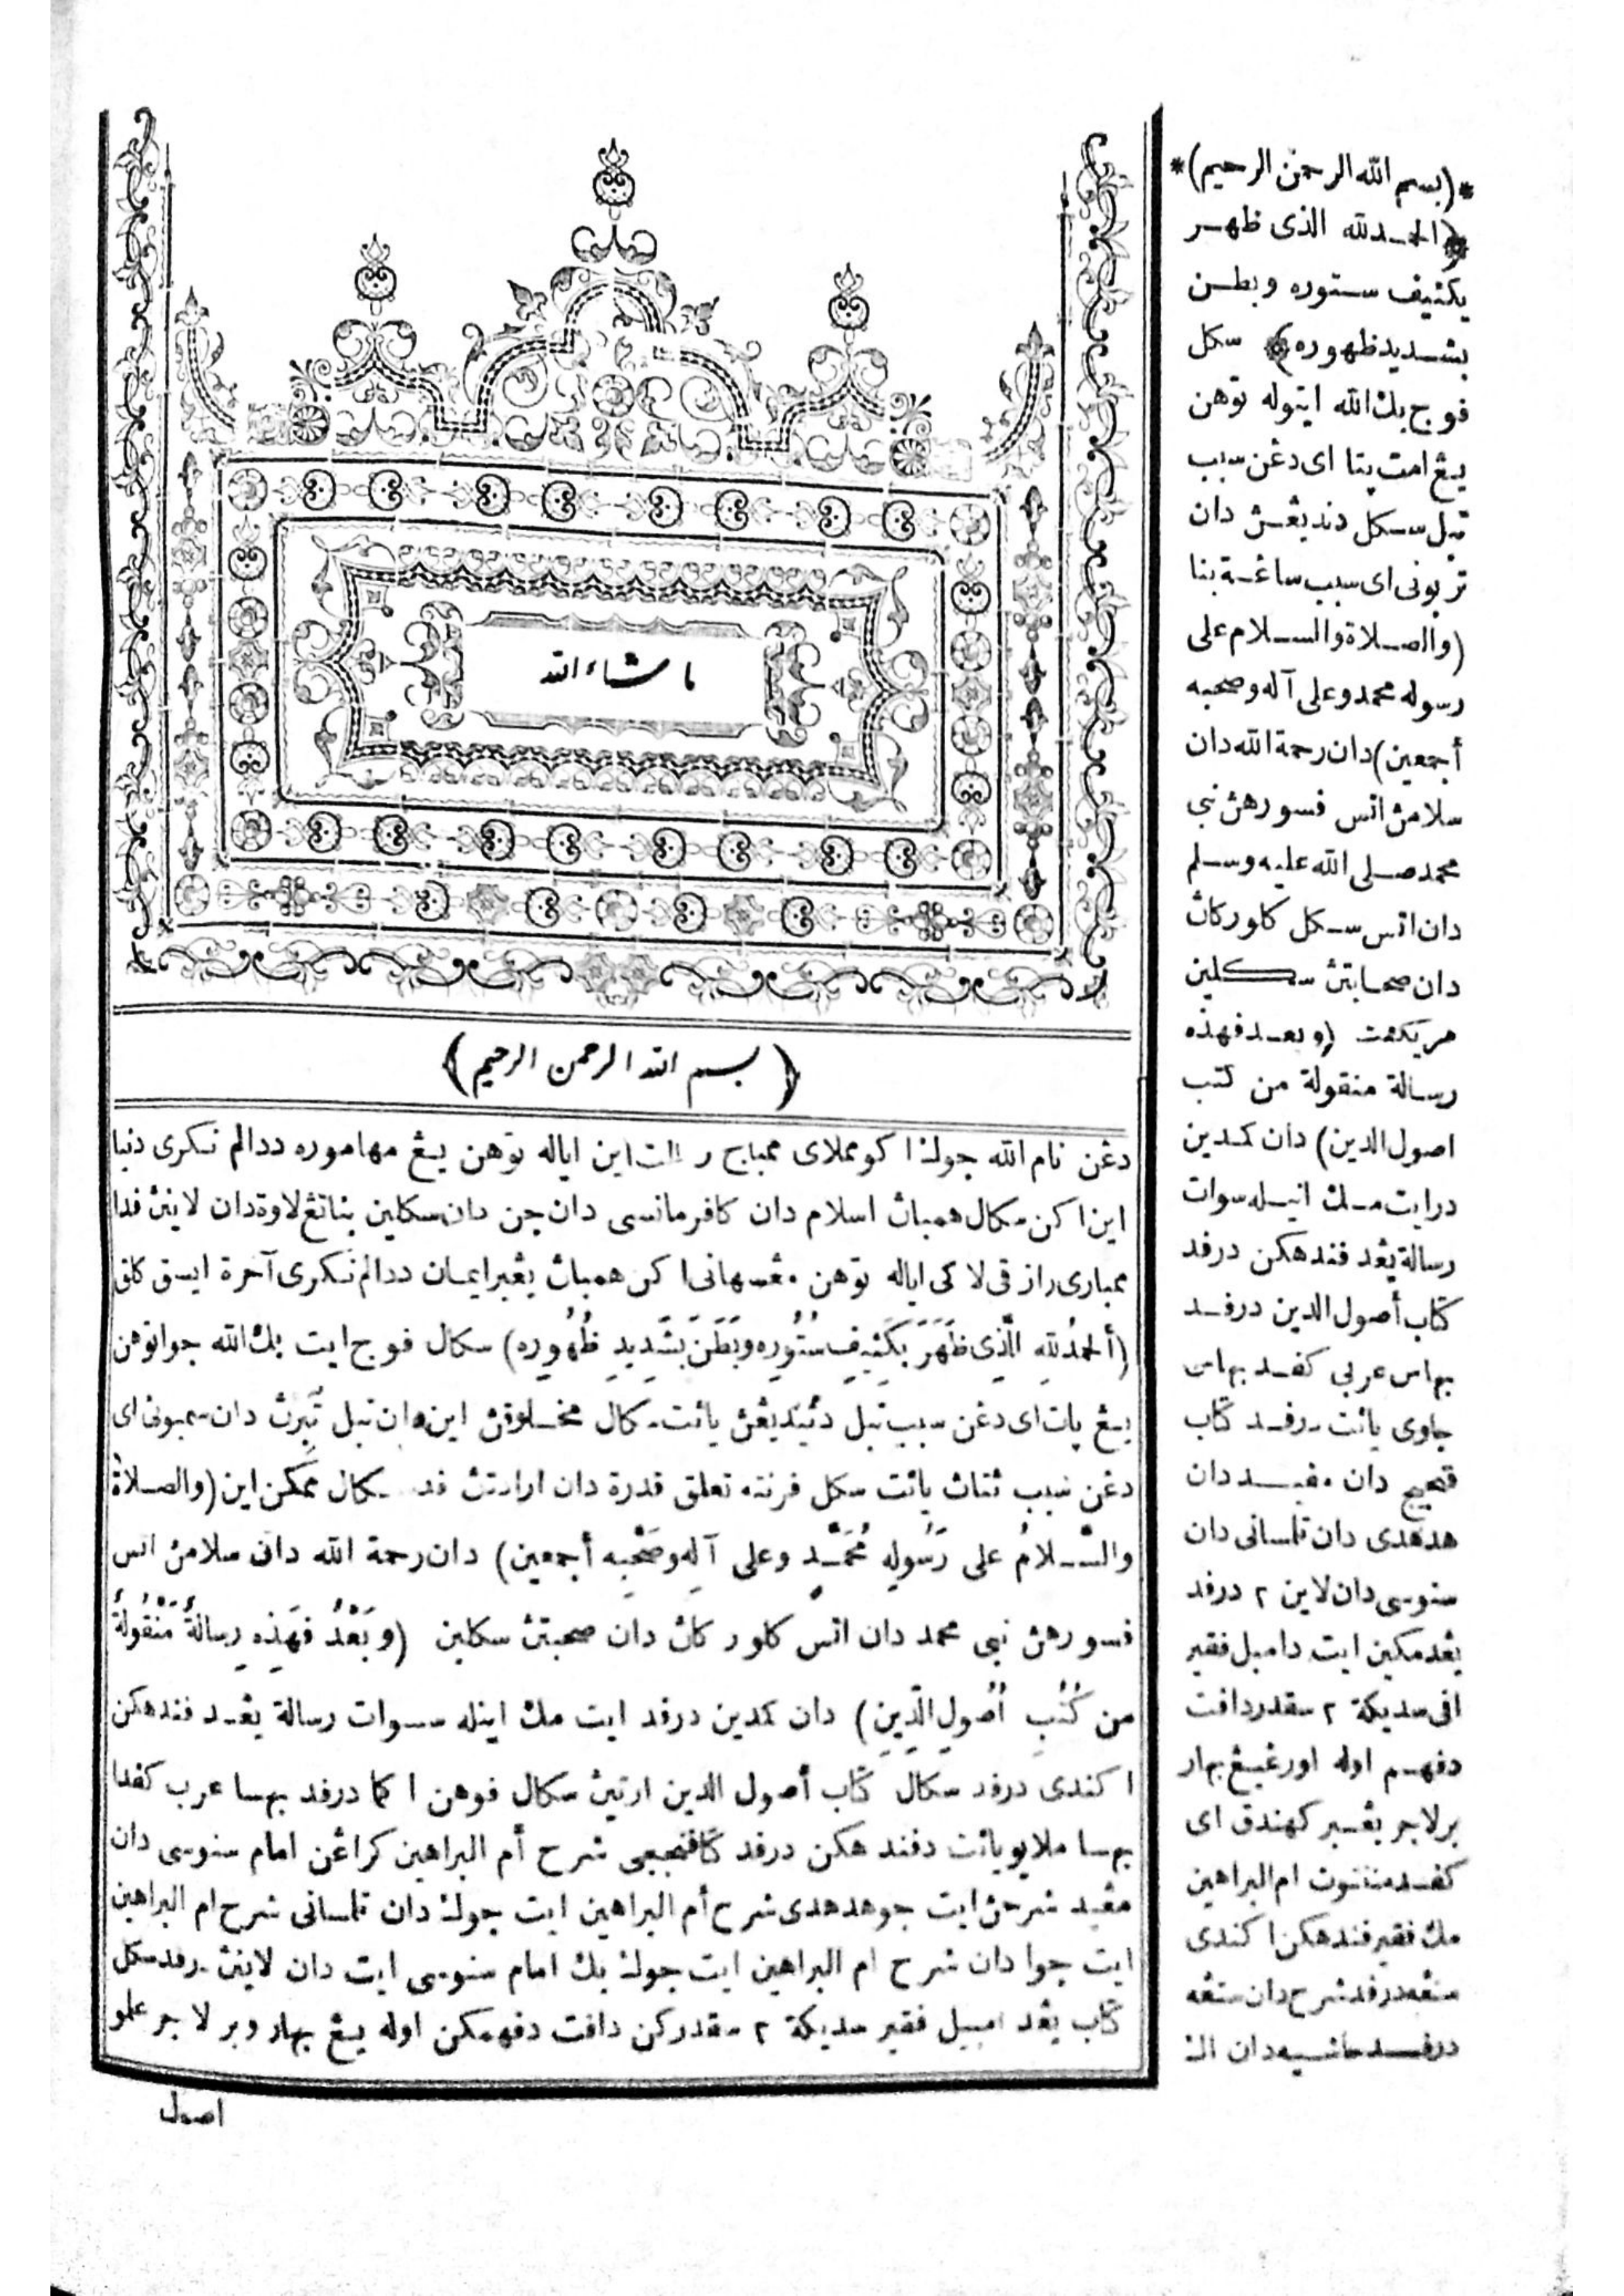 ما شاء الله
﴿بسم الله الرحمن الرحيم﴾
دڠن نام الله جولڬ اكو مملاى ممباچ اين اياله توهن يڠ مهاموره ددالم نڬرى دنيا
اين اكن سكال همباڽ اسلام دان كافر مانسى دان جن دان سكلين بناتڠ لاوة دان لاينڽ فدا
ممبارى رازقى لاكى اياله توهن مڠسهانى اكن همباڽ يڠبرايمان ددالم نڬرى آخرة ايسق كلق
(أَلحمدُ للهِ الَّذِي ظَهَرَ بِكَثِيفِ سُتُورِه وبَطَنَ بِشَدِيدِ ظُهُورِه) سكال فوج ايت بڬ الله جوا توهن
يڠ ڽات اى دڠن سبب تبل دنديڠڽ يائت سكال مخلوقڽ اين دان تبل تبيرڽ دان سمبونى اى
دڠن سبب ڽتاڽ يائت سكل فرنته تعلق قدرة دان ارادتڽ فد سكال ممكن اين (والصلاةُ
والسَّلامُ على رَسُولِهِ مُحَمَّدٍ وعلى آلِهِ وصَحْبِه أجمعين) دان رحمة الله دان سلامڽ اتس
فسورهڽ نبى محمد دان اتس كلوركاڽ دان صحبتڽ سكلين (وبَعْدُ فهَذِهِ رِسالةٌ مَنْقُولةٌ
من كُتُبِ أُصُولِ الدِّينِ) دان كمدين درفد ايت مك اينله سوات رسالة يڠد فندهكن
اكندى درفد سكال كتاب أصول الدين ارتيڽ سكال فوهن اكما درفد بهسا عرب كفدا
بهسا ملايو يائت دفندهكن درفد شرح أم البراهين كراڠن امام سنوسى دان
مڤيد شرحڽ ايت جو هدهدى شرح أم البراهين ايت جولڬ دان تلمسانى شرح ام البراهين
ايت جوا دان شرح ام البراهين ايت جولڬ بك امام سنوسى ايت دان لاينڽ درفد سكل
كتاب يڠد امبيل فقير سديكة ٢ سقدركن دافت دفهمكن اوله يڠ بهارو برلاجر علمو
اصول
*(بسم الله الرحمن الرحيم)*
﴿الحمد لله الذى ظهر
بكثيف ستوره وبطن
بشديد ظهوره﴾ سكل
فوج بڬ الله ايتوله توهن
يڠ امت ڽتا اى دڠن سبب
تبل سكل دنديڠڽ دان
تربونى اى سبب ساڠة ڽتا
(والصلاة والسلام على
رسوله محمد وعلى آله وصحبه
أجمعين) دان رحمة الله دان
سلامڽ اتس فسورهڽ نبى
محمد صلى الله عليه وسلم
دان اتس سكل كلوركاڽ
دان صحابتڽ سكلين
مريكئت (وبعد فهذه
رسالة منقولة من كتب
اصول الدين) دان كمدين
درايت مك اينيله سوات
رسالة يڠد فندهكن درفد
كتاب أصول الدين درفد
بهاس عربى كفد بهاس
جاوى يائت درفد كتاب
دان مفيد دان
هدهدى دان تلمسانى دان
سنوسى دان لاين ٢ درفد
يڠدمكين ايت دامبل فقير
افى سديكة ٢ سقدر دافت
دفهم اوله اورڠيڠ بهار
برلاجر يڠبر كهندق اى
كفد متن ام البراهين
مك فقير فندهكن اكندى
ستڠه درفد شرح دان ستڠه
درفد حاشيه دان